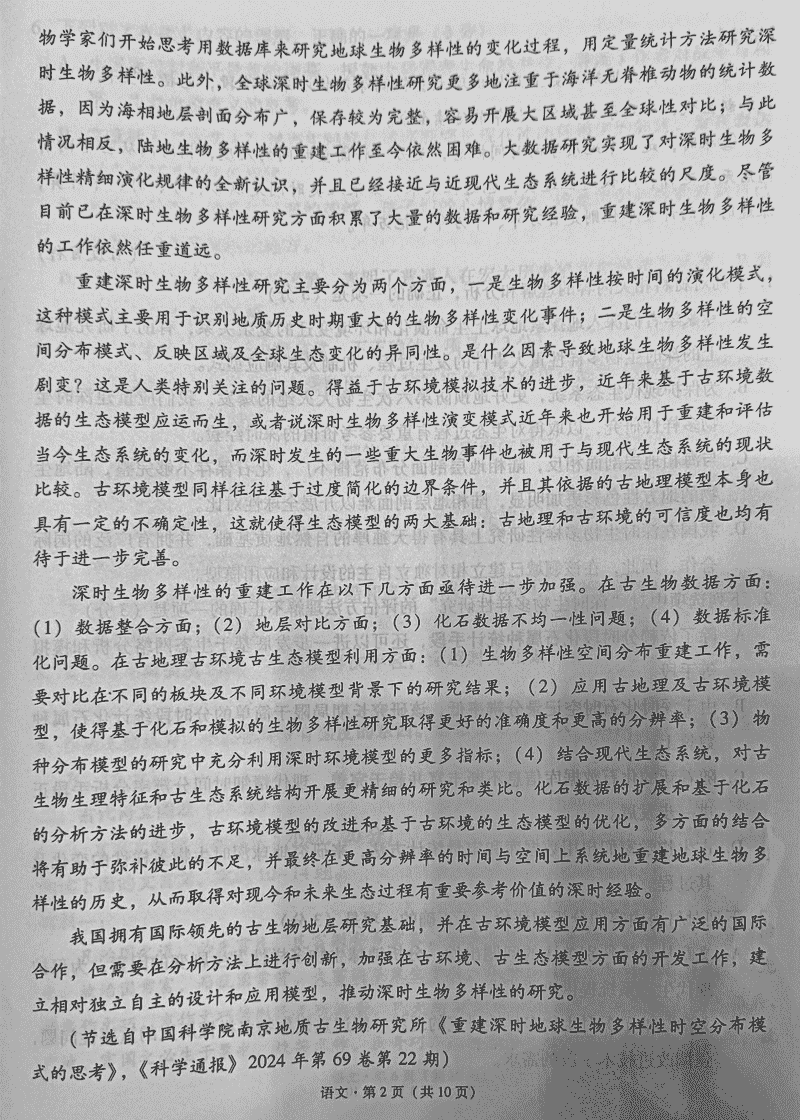 物学家们开始思考用数据库来研究地球生物多样性的变化过程，用定量统计方法研究深
时生物多样性。此外，全球深时生物多样性研究更多地注重于海洋无脊椎动物的统计数
据，因为海相地层剖面分布广，保存较为完整，容易开展大区域甚至全球性对比；与此
情况相反，陆地生物多样性的重建工作至今依然困难。大数据研究实现了对深时生物多
样性精细演化规律的全新认识，并且已经接近与近现代生态系统进行比较的尺度。尽管
目前已在深时生物多样性研究方面积累了大量的数据和研究经验，重建深时生物多样性
的工作依然任重道远。
重建深时生物多样性研究主要分为两个方面，一是生物多样性按时间的演化模式，
这种模式主要用于识别地质历史时期重大的生物多样性变化事件；二是生物多样性的空
间分布模式、反映区域及全球生态变化的异同性。是什么因素导致地球生物多样性发生
剧变？这是人类特别关注的问题。得益于古环境模拟技术的进步，近年来基于古环境数
据的生态模型应运而生，或者说深时生物多样性演变模式近年来也开始用于重建和评估
当今生态系统的变化，而深时发生的一些重大生物事件也被用于与现代生态系统的现状
比较。古环境模型同样往往基于过度简化的边界条件，并且其依据的古地理模型本身也
具有一定的不确定性，这就使得生态模型的两大基础：古地理和古环境的可信度也均有
待于进一步完善。
深时生物多样性的重建工作在以下几方面亟待进一步加强。在古生物数据方面：
（1）数据整合方面；（2）地层对比方面；（3）化石数据不均一性问题；（4）数据标准
化问题。在古地理古环境古生态模型利用方面：（1）生物多样性空间分布重建工作，需
要对比在不同的板块及不同环境模型背景下的研究结果；（2）应用古地理及古环境模
型，使得基于化石和模拟的生物多样性研究取得更好的准确度和更高的分辨率；（3）物
种分布模型的研究中充分利用深时环境模型的更多指标；（4）结合现代生态系统，对古
生物生理特征和古生态系统结构开展更精细的研究和类比。化石数据的扩展和基于化石
的分析方法的进步，古环境模型的改进和基于古环境的生态模型的优化，多方面的结合
将有助于弥补彼此的不足，并最终在更高分辨率的时间与空间上系统地重建地球生物多
样性的历史，从而取得对现今和未来生态过程有重要参考价值的深时经验。
我国拥有国际领先的古生物地层研究基础，并在古环境模型应用方面有广泛的国际
合作，但需要在分析方法上进行创新，加强在古环境、古生态模型方面的开发工作，建
立相对独立自主的设计和应用模型，推动深时生物多样性的研究。
（节选自中国科学院南京地质古生物研究所《重建深时地球生物多样性时空分布模
式的思考》，《科学通报》2024年第69卷第22期）
语文·第2页（共10页）